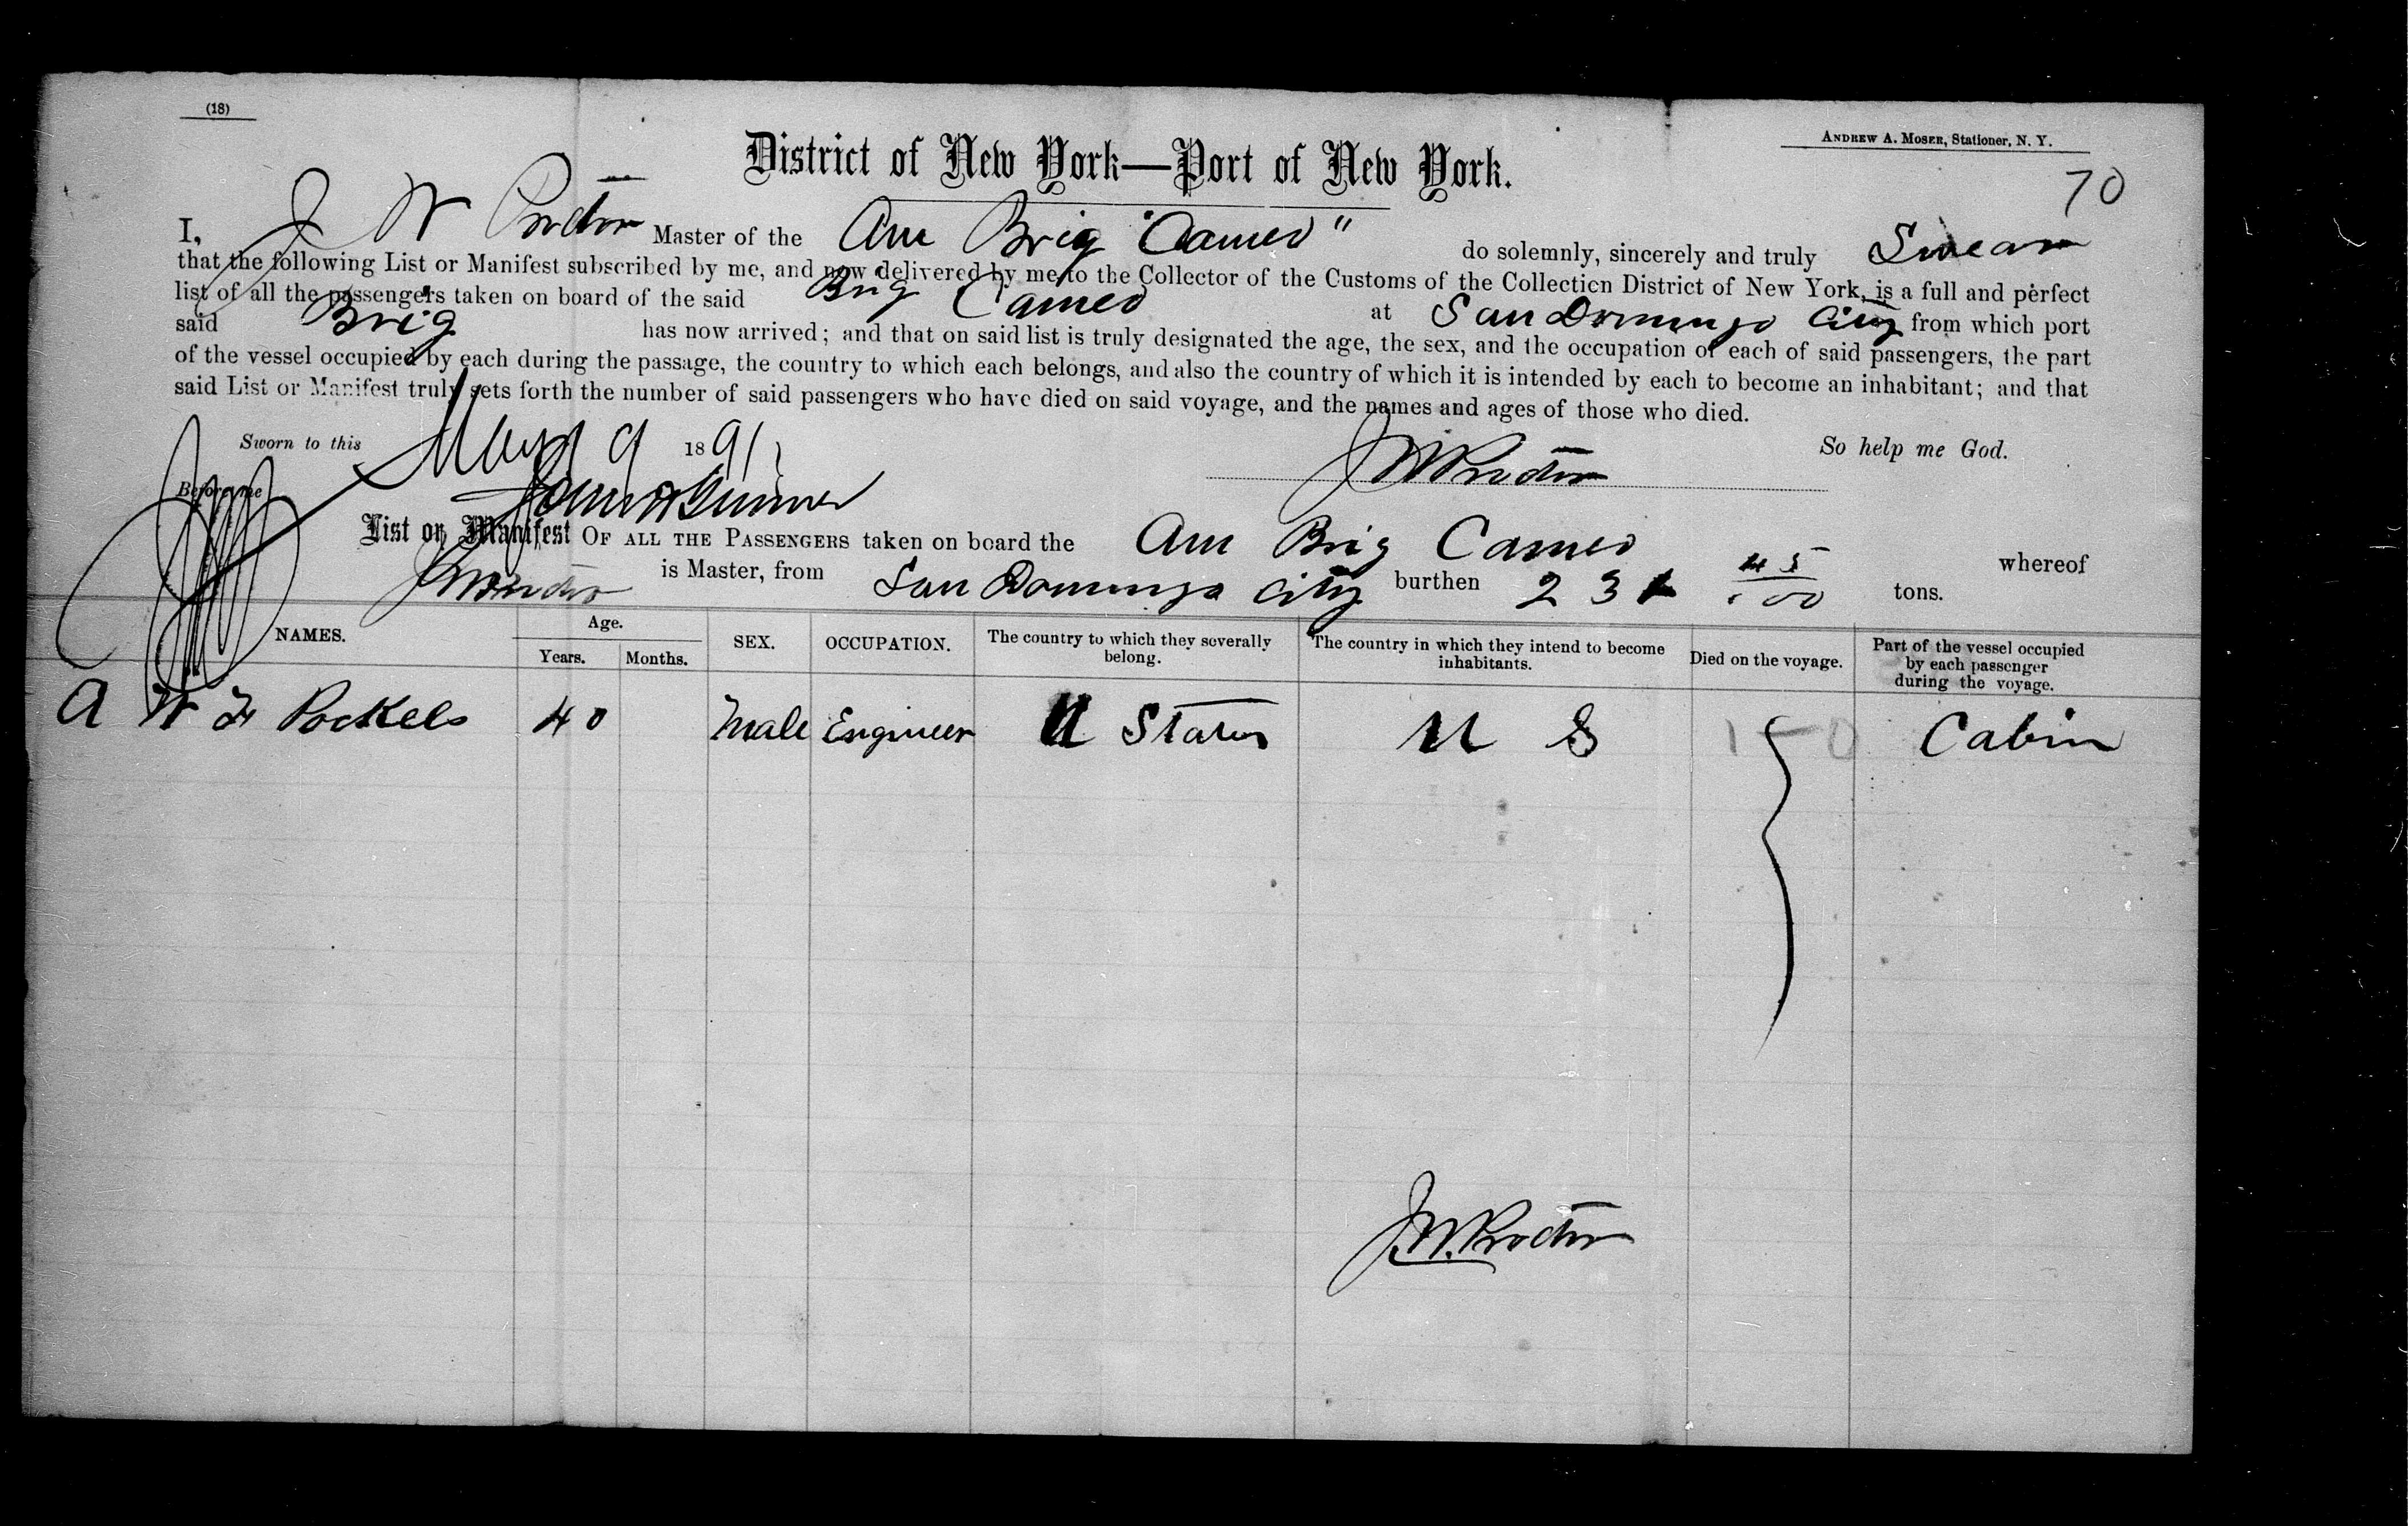 (18)
ANDREW A. MOSER, Stationer, N. Y.
District of New York—Port of New York.
70
I, J W Proctor Master of the Am Brig "Cameo" do solemnly, sincerely and truly Swear
that the following List or Manifest subscribed by me, and now delivered by me to the Collector of the Customs of the Collection District of New York, is a full and perfect
list of all the passengers taken on board of the said Brig Cameo at San Domingo City from which port
said Brig has now arrived; and that on said list is truly designated the age, the sex, and the occupation of each of said passengers, the part
of the vessel occupied by each during the passage, the country to which each belongs, and also the country of which it is intended by each to become an inhabitant; and that
said List or Manifest truly sets forth the number of said passengers who have died on said voyage, and the names and ages of those who died.
Sworn to this May 9 1891 So help me God.
J W Proctor
Before me
List or Manifest OF ALL THE PASSENGERS taken on board the Am Brig Cameo whereof
J W Proctor is Master, from San Domingo City burthen 231 45/100 tons.
NAMES. Age. Years. Months. SEX. OCCUPATION. The country to which they severally belong. The country in which they intend to become inhabitants. Died on the voyage. Part of the vessel occupied by each passenger during the voyage.
A W F Pockels 40 Male Engineer U States U S 1-0 Cabin
J. W. Proctor